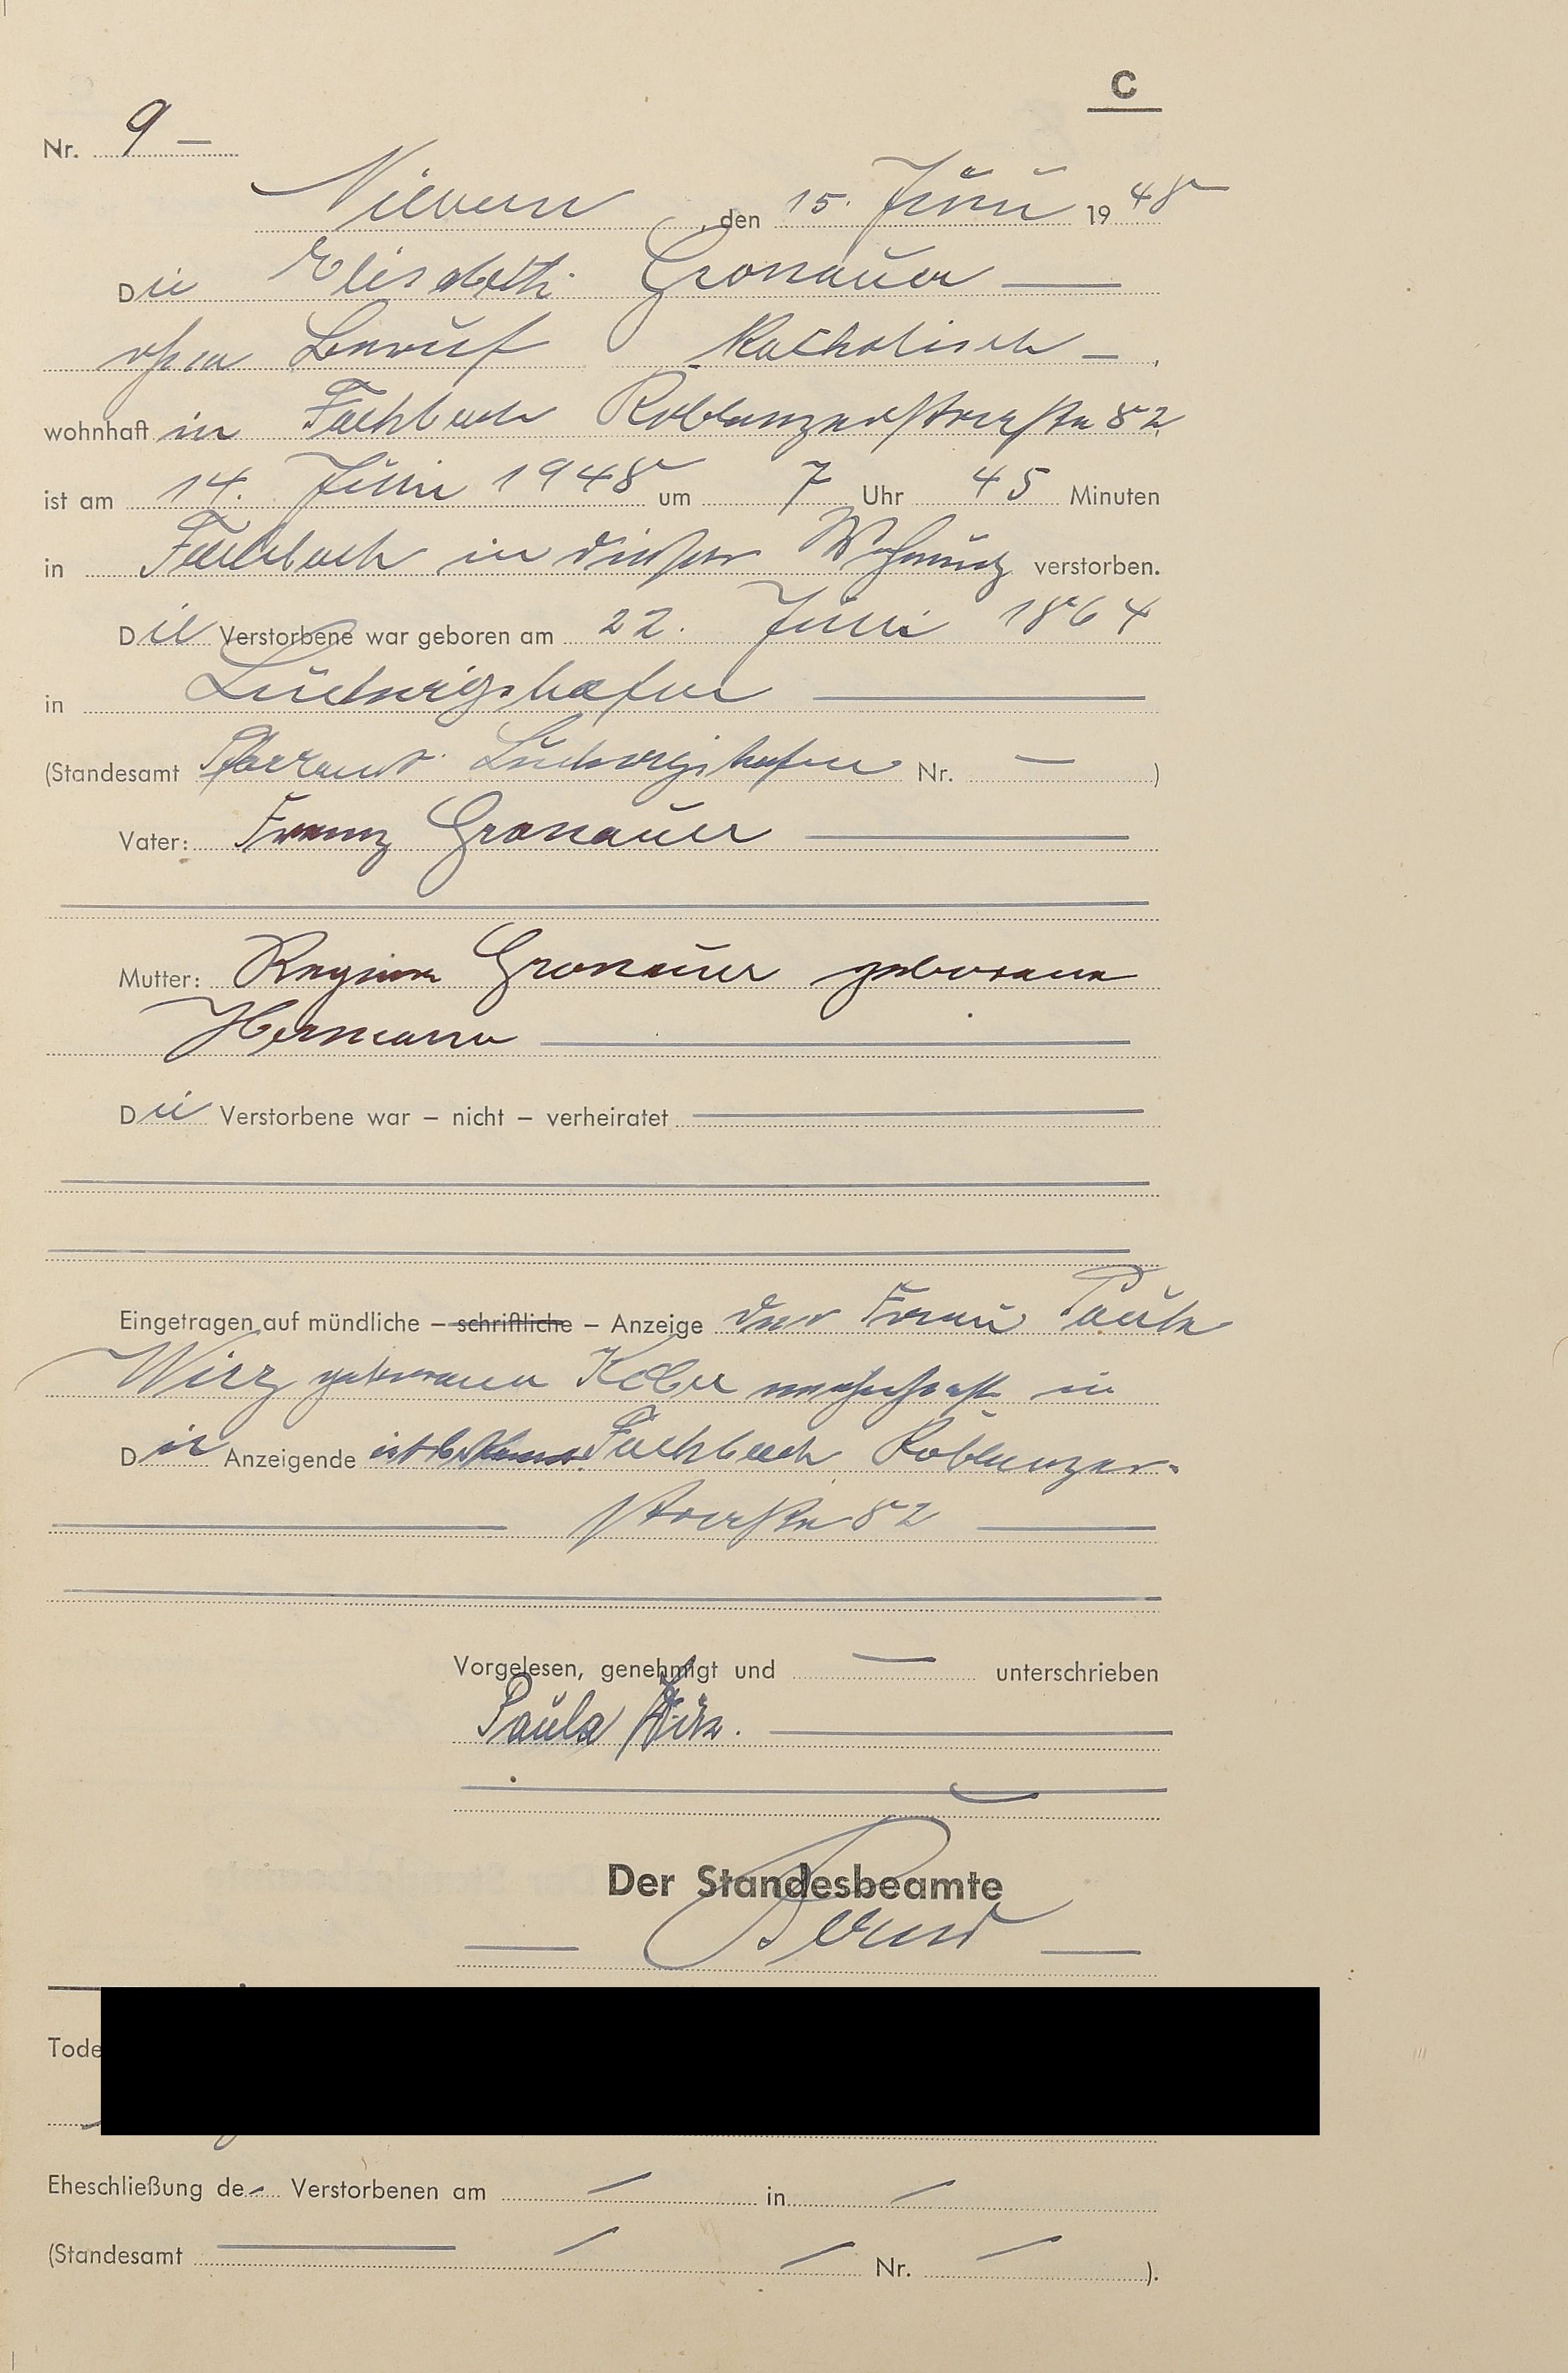 C
Nr. 9 —
Nievern, den 15. Juni 1948
Die Elisabeth Gronauer —
ohne Beruf katholisch —,
wohnhaft in Fachbach Koblenzerstraße 82
ist am 14. Juni 1948 um 7 Uhr 45 Minuten
in Fachbach in dieser Wohnung verstorben.
Die Verstorbene war geboren am 22. Juni 1864
in Ludwigshafen —
(Standesamt Pfarramt Ludwigshafen Nr. — )
Vater: Franz Gronauer —
Mutter: Regina Gronauer geborene
Hermann —
Die Verstorbene war – nicht – verheiratet —
Eingetragen auf mündliche – schriftliche – Anzeige der Frau Paula
Wirz geborene wohnhaft in
Die Anzeigende ist bekannt Fachbach Koblenzer-
straße 82 —
Vorgelesen, genehmigt und — unterschrieben
Paula Wirz. —
Der Standesbeamte
Tode
Eheschließung de Verstorbenen am — in —
(Standesamt — Nr. — ).